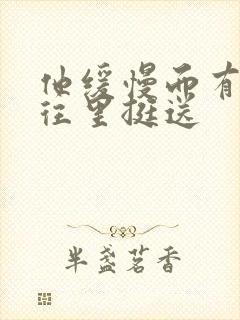 他缓慢而有
往里挺送
半盏茗香